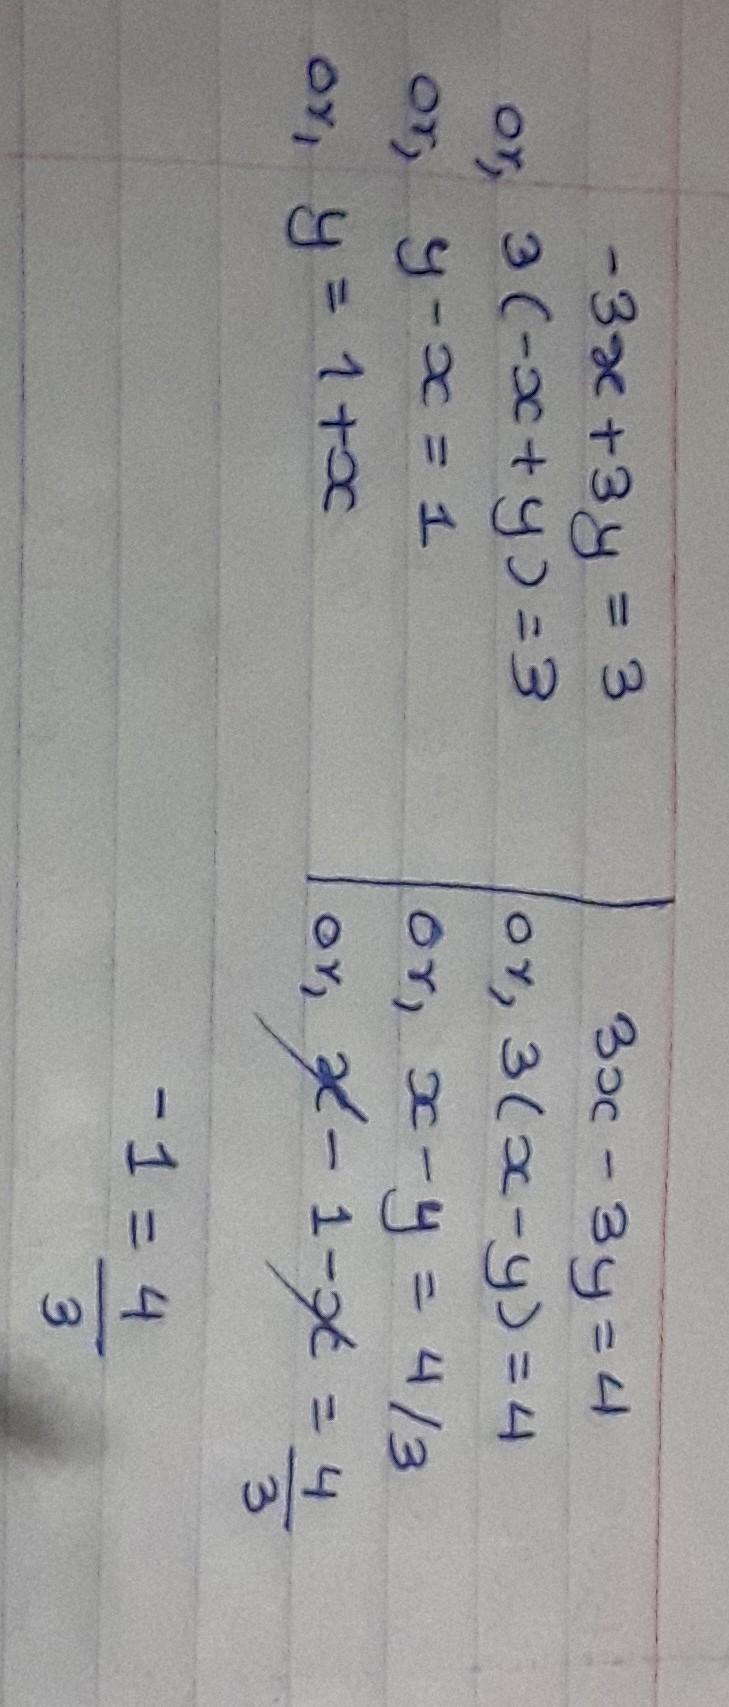 -3x + 3y = 3
or, 3(-x + y) = 3
or, y - x = 1
or, y = 1 + x
3x - 3y = 4
or, 3(x - y) = 4
or, x - y = 4/3
or, x - 1 - x = 4/3
-1 = 4/3